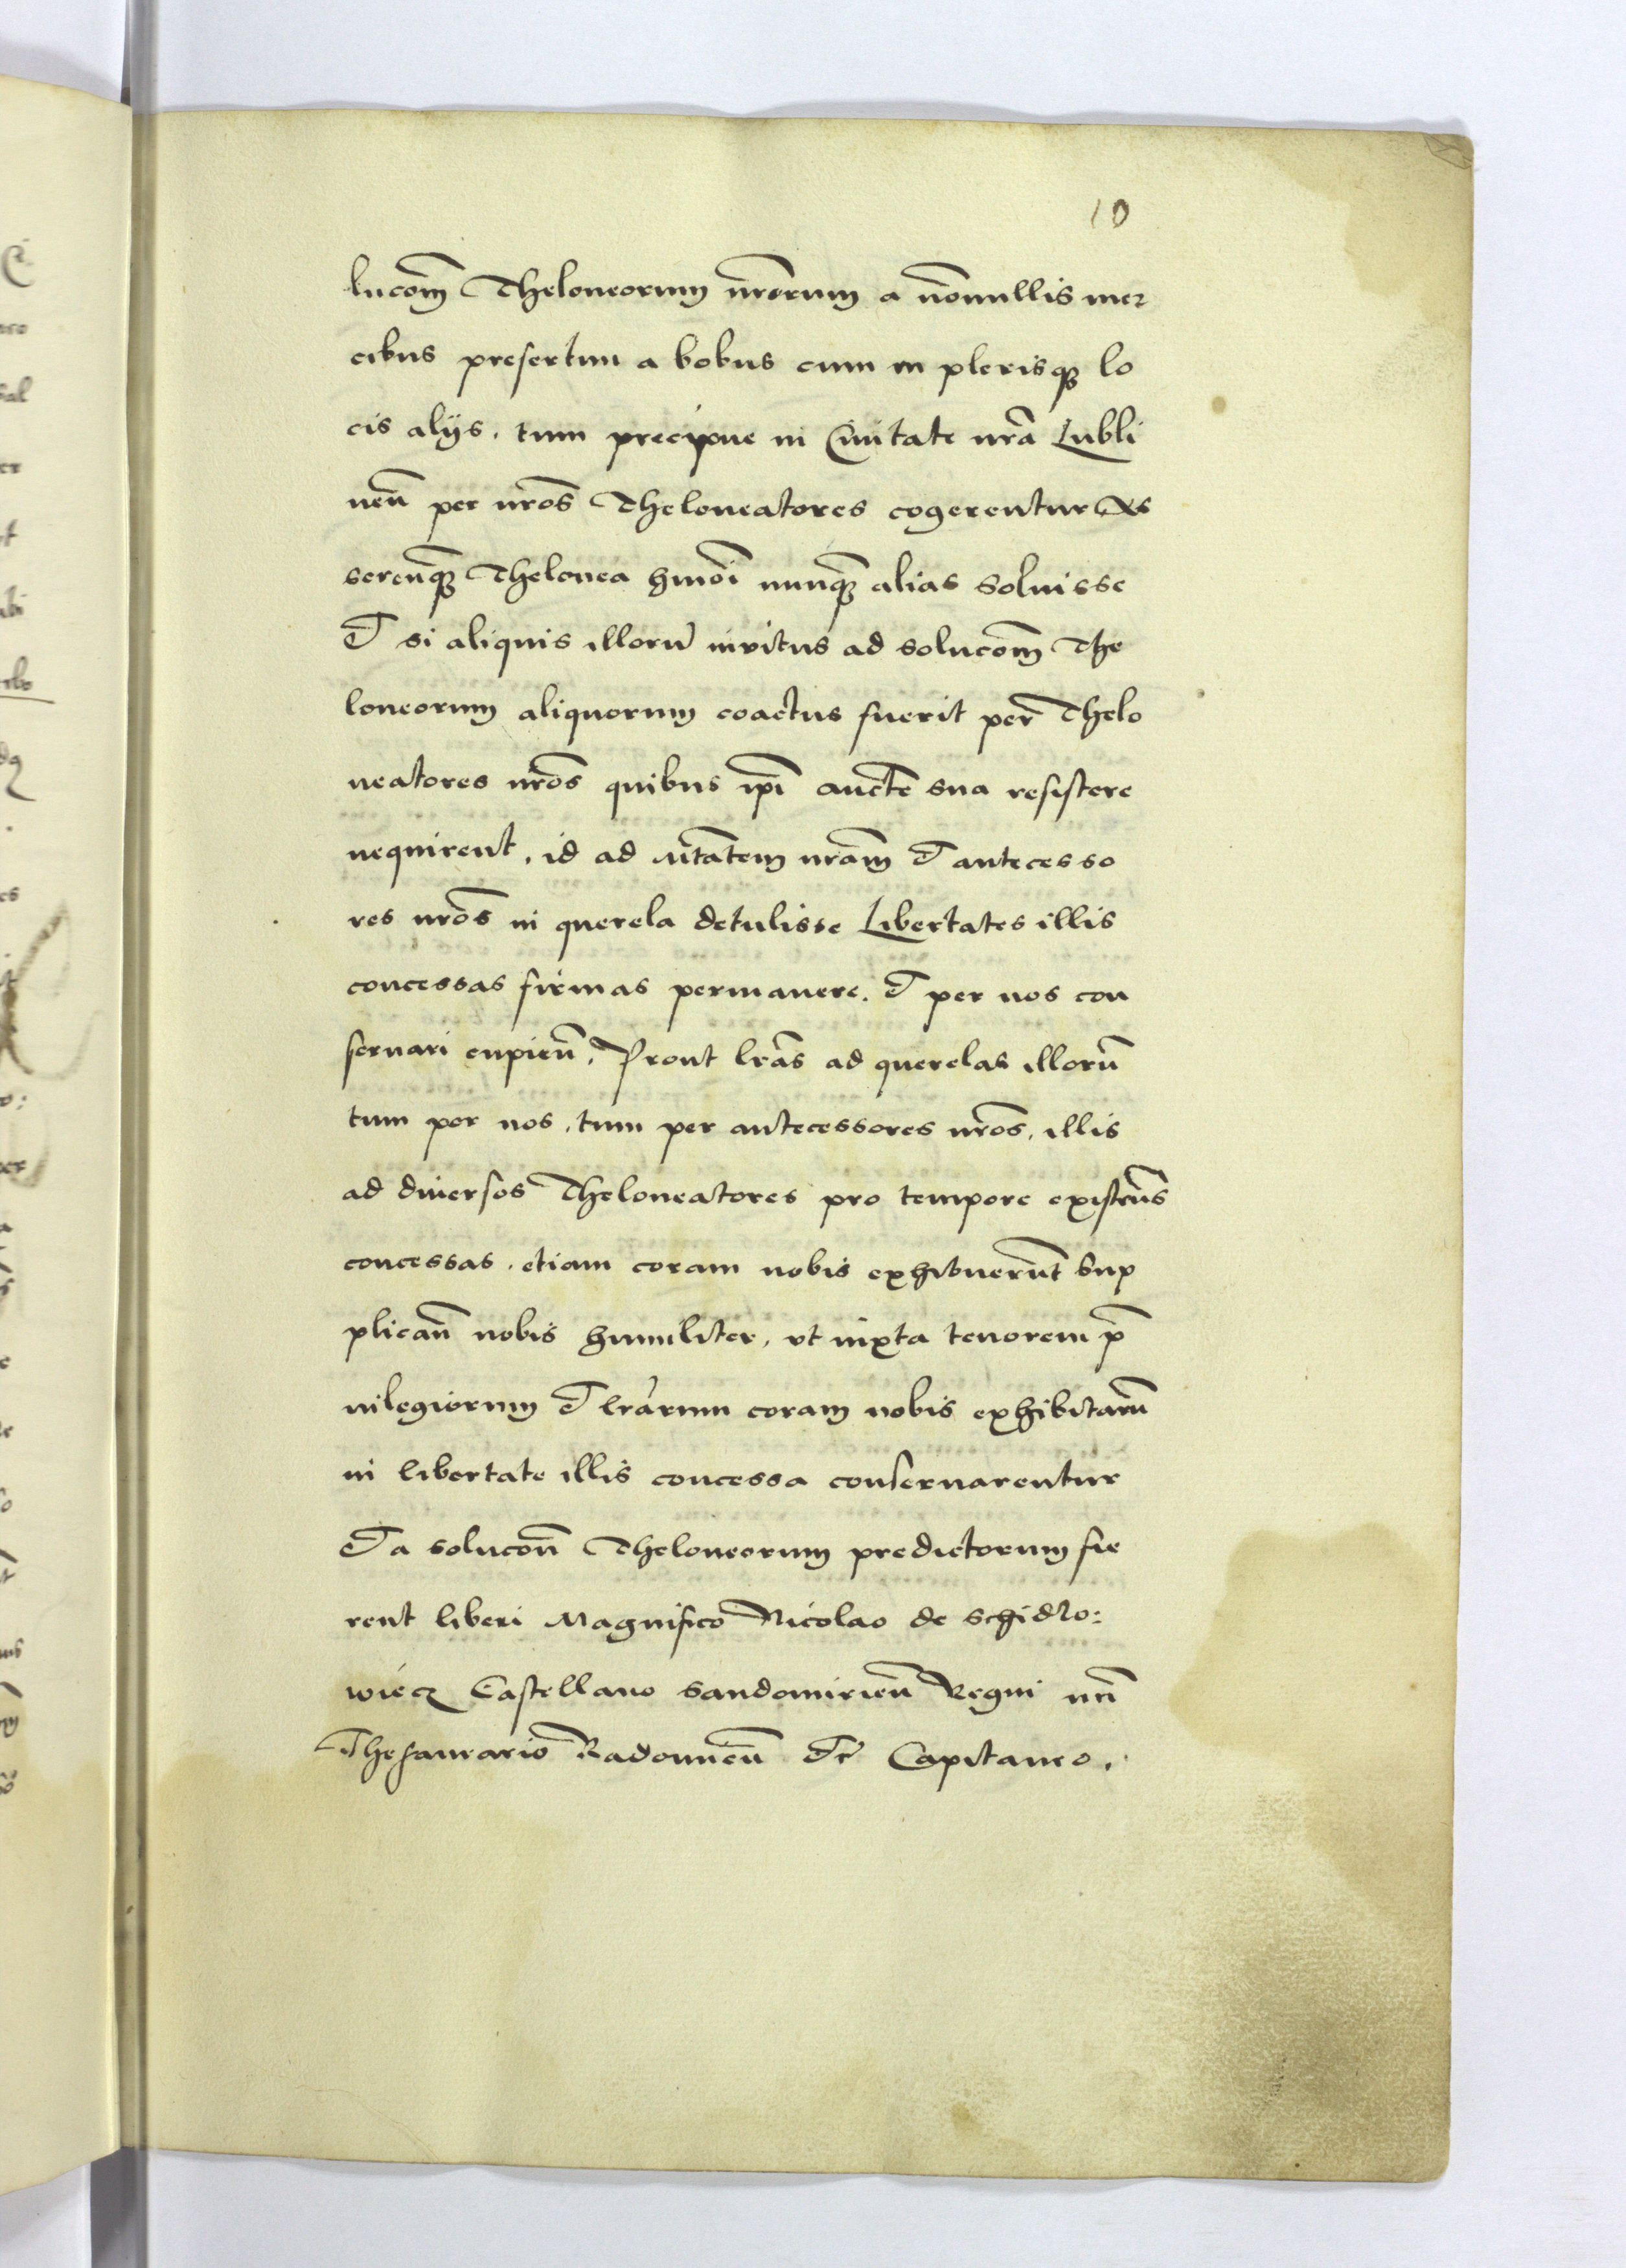 10
lucom̄ Theloneorum nr̄orum a nōnullis mer
cibus presertim a bobus cum in plerisq3 lo
cis alijs. tum precipue in Ciuitate nr̄a Lubli
nen̄ per nr̄os Theloneatores cogerentur As
serenq3 Thelonea hmōi nunq3 alias soluisse
Et si aliquis illorū invitus ad solucom̄ The
loneorum aliquorum coactus fuerit per Thelo
neatores nr̄os quibus ip̄i aucte sua resistere
nequirent, id ad Mtatem nr̄am Et antecesso
res nr̄os in querela detulisse Libertates illis
concessas firmas permanere. Et per nos con
seruari cupien̄. Prout lr̄as ad querelas illorū
tum per nos, tum per antecessores nr̄os, illis
ad diuersos Theloneatores pro tempore existen̄s
concessas. etiam coram nobis exhibuerūt Sup
plican̄ nobis humiliter, vt iuxta tenorem p̄
uilegiorum Et lr̄arum coram nobis exhibitarū
in libertate illis concessa conseruarentur
Et a solucon̄ Theloneorum predictorum fie
rent liberi Magnifico Nicolao de Schidlo:
wiecz Castellano Sandomirien̄ Regni nr̄i
Thesaurario Radomien̄ Etc̄ Capitaneo.